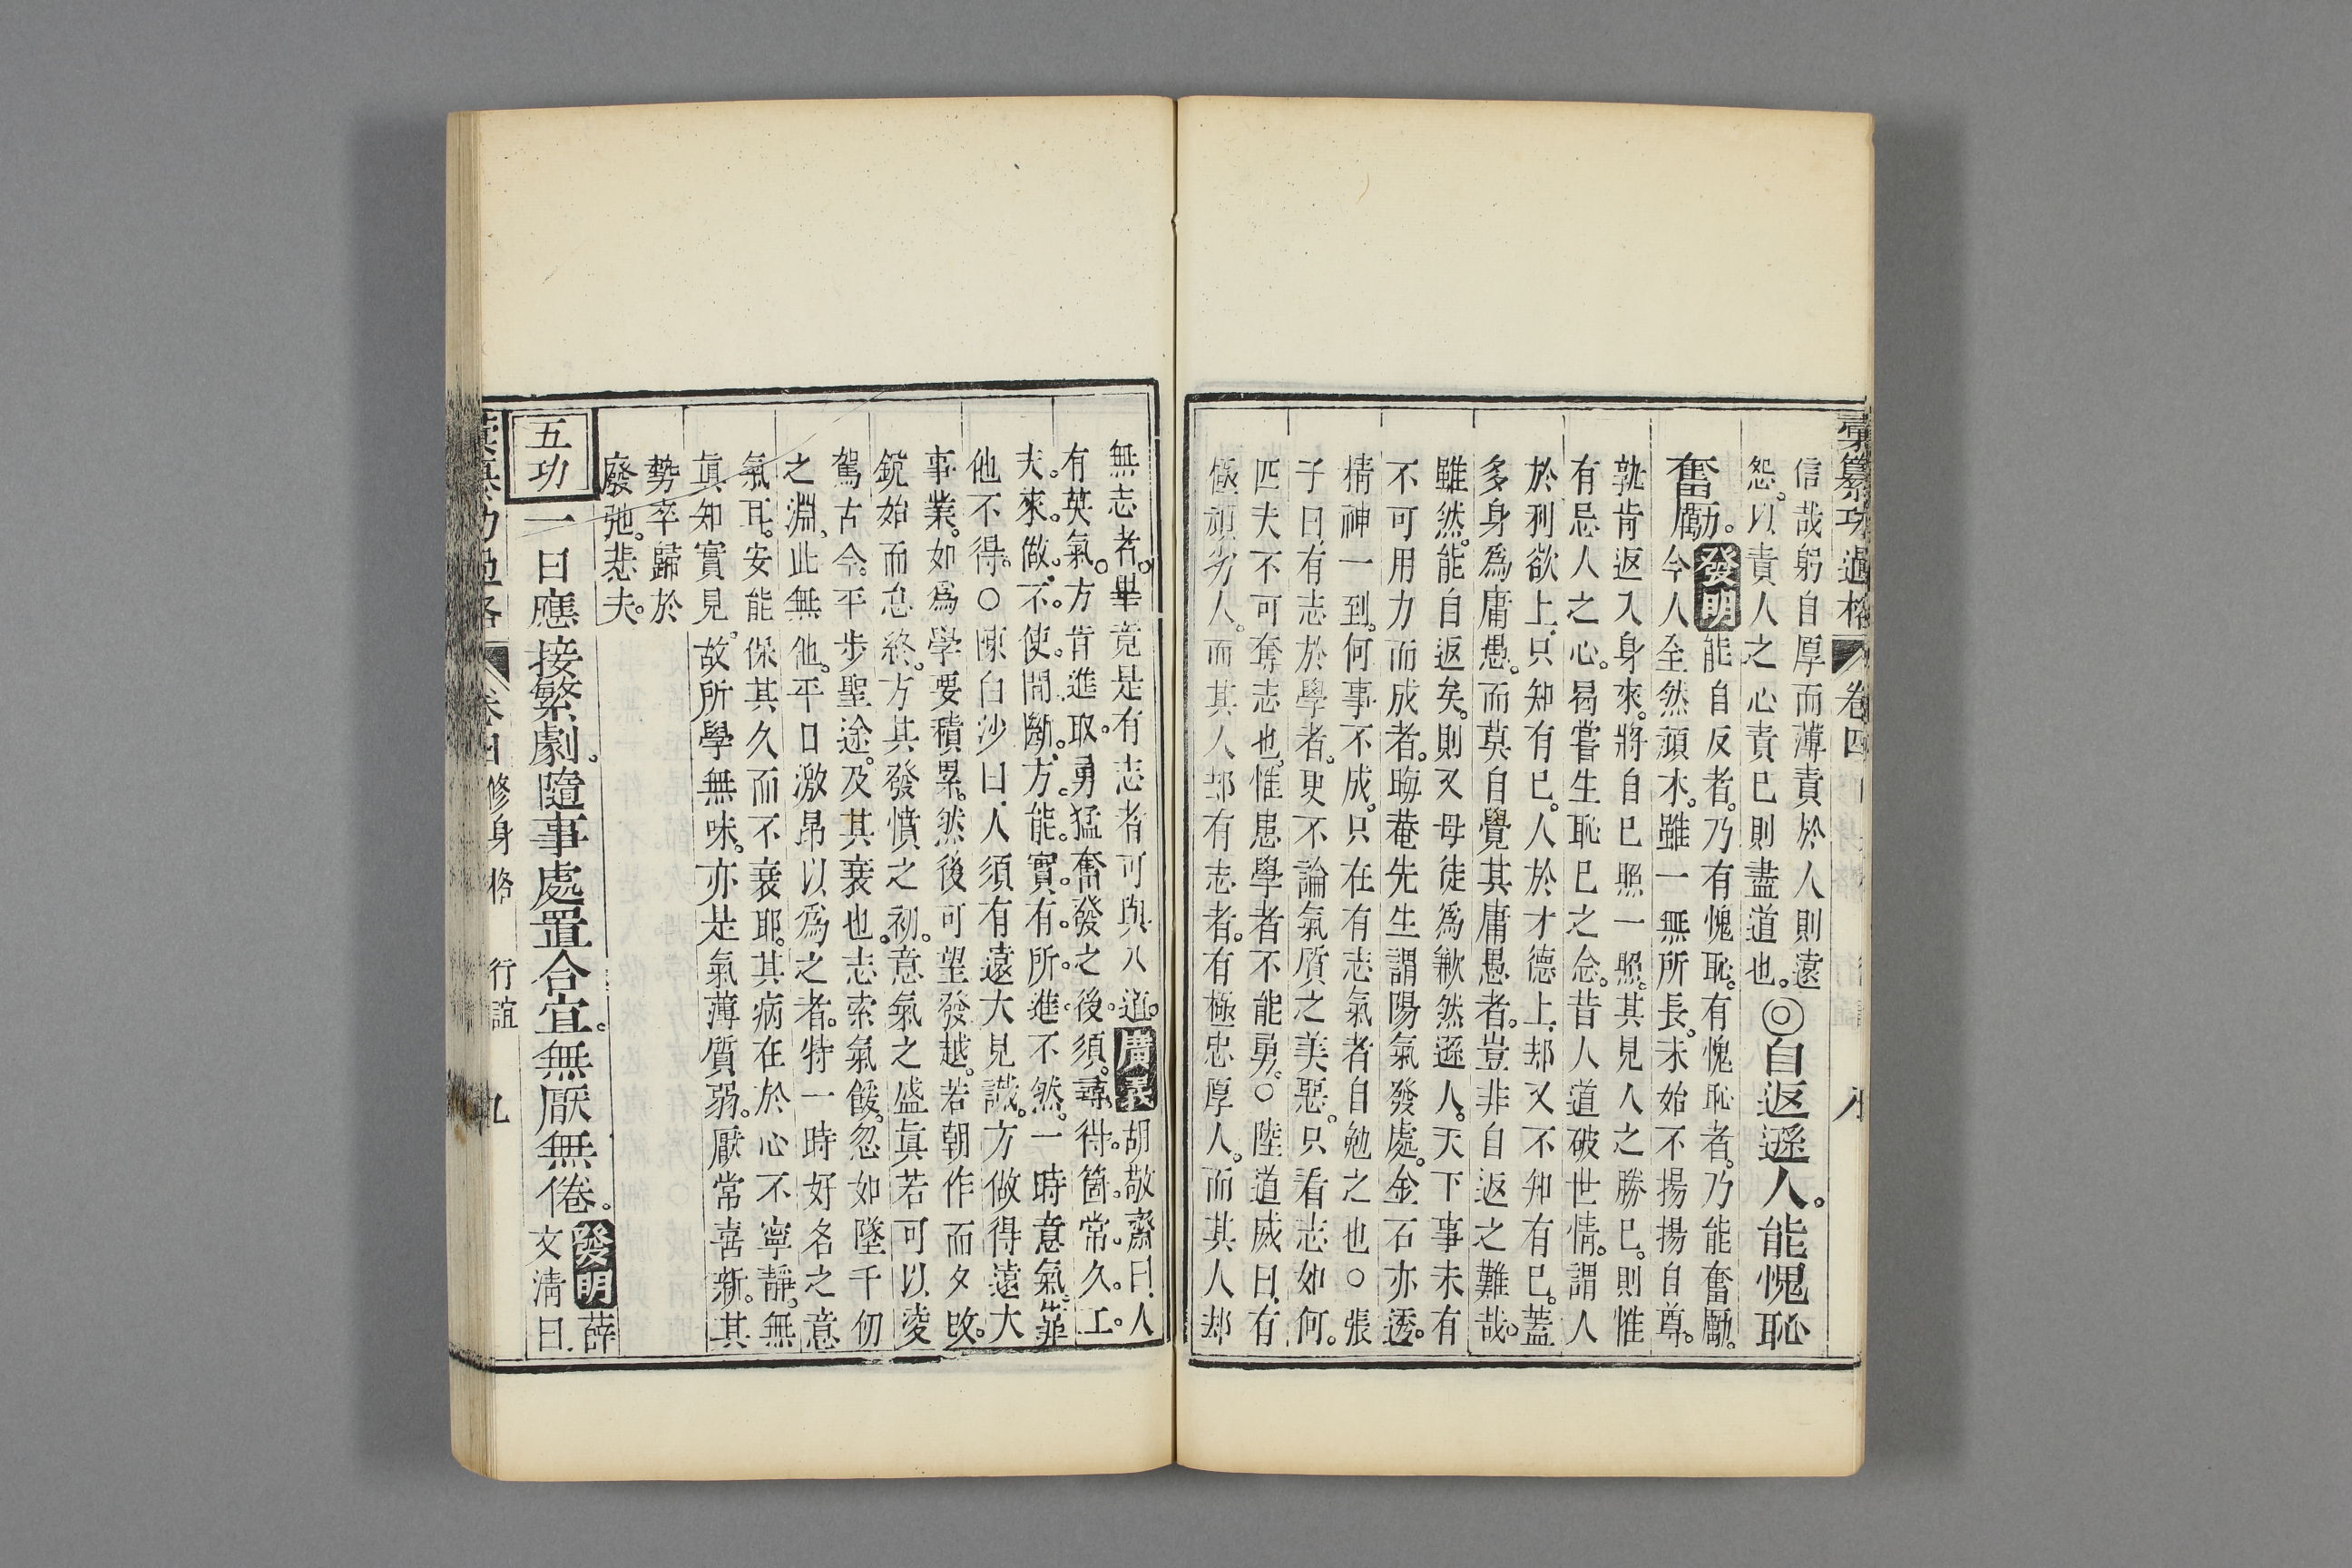 彙纂功過格 卷四 八
信哉躬自厚而薄責於人則遠
怨。以責人之心責已則盡道也。◎自返遜人。能愧恥
奮勵。發明能自反者。乃有愧恥。有愧恥者。乃能奮勵。
今人至然頭木。雖一無所長。未始不揚揚自尊。
孰肯返入身來。將自已照一照。其見人之勝已。則惟
有忌人之心。曷嘗生恥已之念。昔人道破世情。謂人
於利欲上。只知有已。人於才德上。却又不知有已。蓋
多身爲庸愚。而莫自覺其庸愚者。豈非自返之難哉。
雖然。能自返矣。則又毋徒爲歉然遜人。天下事未有
不可用力而成者。晦菴先生謂陽氣發處。金石亦透。
精神一到。何事不成。只在有志氣者自勉之也○張
子曰。有志於學者。更不論氣質之美惡。只看志如何。
匹夫不可奪志也。惟患學者不能勇。○陸道威曰。有
極頑劣人。而其人却有志者。有極忠厚人。而其人却
無志者。畢竟是有志者可與入道。廣義胡敬齋曰。人
有英氣。方肯進取。勇猛奮發之後。須尋得箇常久工
夫來做。不使間斷。方能實有所進。不然。一時意氣靠
他不得。○陳白沙曰。人須有遠大見識。方做得遠大
事業。如爲學要積累。然後可望發越。若朝作而夕改。
銳始而怠終。方其發憤之初。意氣之盛眞若可以凌
駕古今。平步聖途。及其衰也。志索氣餒。忽如墜千仞
之淵。此無他。平日激昂以爲之者。特一時好名之意
氣耳。安能保其久而不衰耶。其病在於心不寧靜。無
眞知實見。故所學無味。亦是氣薄質弱。厭常喜新。其
勢卒歸於
廢弛。悲夫。
五功 一曰應接繁劇。隨事處置合宜。無厭無倦。發明薛
文淸曰。
彙纂功過格 卷四 修身格 行誼 九